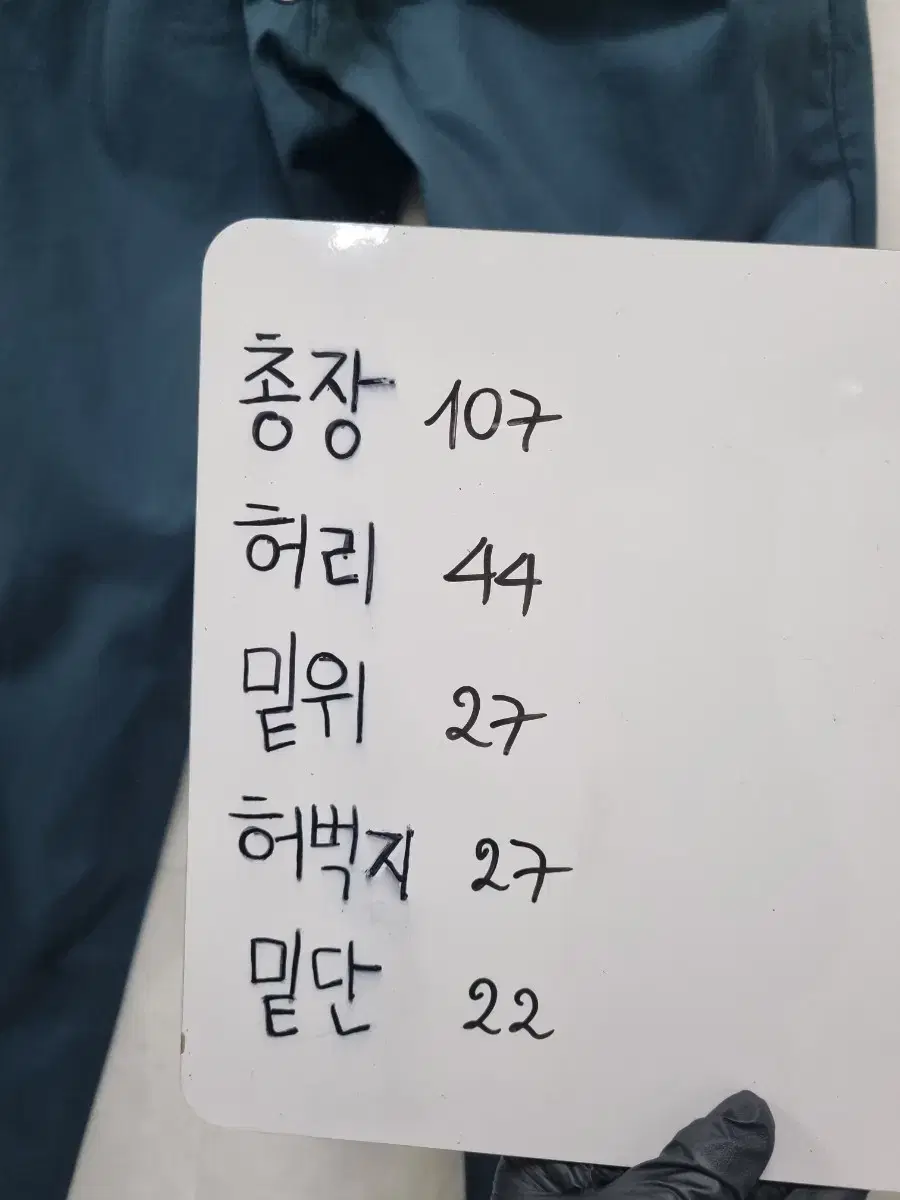 총장 107
허리 44
밑위 27
허벅지 27
밑단 22